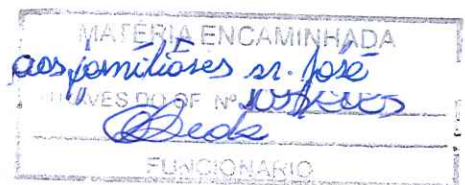 MATÉRIA ENCAMINHADA
aos familiares sr. José
ATRAVÉS DO OF. Nº
FUNCIONÁRIO